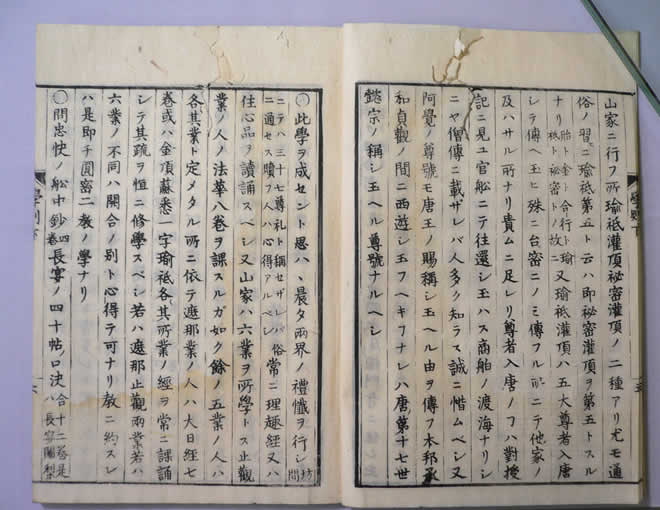 山家ニ行フ所瑜祇灌頂祕密灌頂ノ二種アリ尤モ通
俗ノ習ニ瑜祇第五ト云ハ即祕密灌頂ヲ第五トスル
ナリ胎ト金ト合行ト瑜祇ト祕密トノ故ニ又瑜祇灌頂ハ五大尊者入唐
シテ傳ヘ玉ヒ殊ニ台密ニノミ傳フル所ニテ他家ノ
及ハサル所ナリ貴ムニ足レリ尊者入唐ノヿハ對授
記ニ見ユ官船ニテ往還シ玉ハス商船ノ渡海ナリシ
ニヤ僧傳ニ載ザレバ人多ク知ラス誠ニ惜ムベシ又
阿覺ノ尊號モ唐王ノ賜稱シ玉ヘル由ヲ傳フ本邦承
和貞觀ノ間ニ西遊シ玉フヘキヿナレハ唐第十七世
懿宗ノ稱シ玉ヘル尊號ナルベシ
學則下
○此學ヲ成セント思ハヽ晨夕兩界ノ禮懺ヲ行シ坊間
ニテハ三十七尊礼ト稱セザレバ俗ニ通セス贖フ人ハ心得アルベシ常ニ理趣經又ハ
住心品ヲ讀誦スベシ又山家ハ六業ヲ所學トス止觀
業ノ人ノ法華八卷ヲ課スルガ如ク餘ノ五業ノ人ハ
各其業ト定メタル所ニ依テ遮那業ノ人ハ大日經七
卷或ハ金頂蘇悉一字瑜祇各其所業ノ經ヲ常ニ課誦
シテ其疏ヲ恒ニ修學スベシ若ハ遮那止觀兩業若ハ
六業ノ不同ハ開合ノ別ト心得テ可ナリ敎ニ約スレ
ハ是即チ圓密二敎ノ學ナリ
○問忠快ノ船中鈔四卷長宴ノ四十帖口決合十二卷是ハ長宴闍梨
學則下